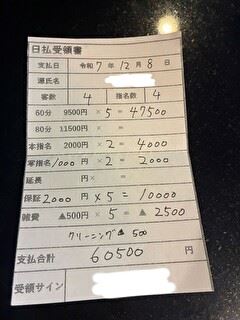 日払受領書
支払日 令和 7 年 12 月 8 日
源氏名
客数 4 指名数 4
60分 9500円 × 5 = 47500
80分 11500円 ×
本指名 2000円 × 2 = 4000
写指名 1000 円 × 2 = 2000
延長 円 ×
保証 2000 円 × 5 = 10000
雑費 ▲500円 × 5 = ▲ 2500
クリーニング ▲ 500
支払合計 60500 円
受領サイン